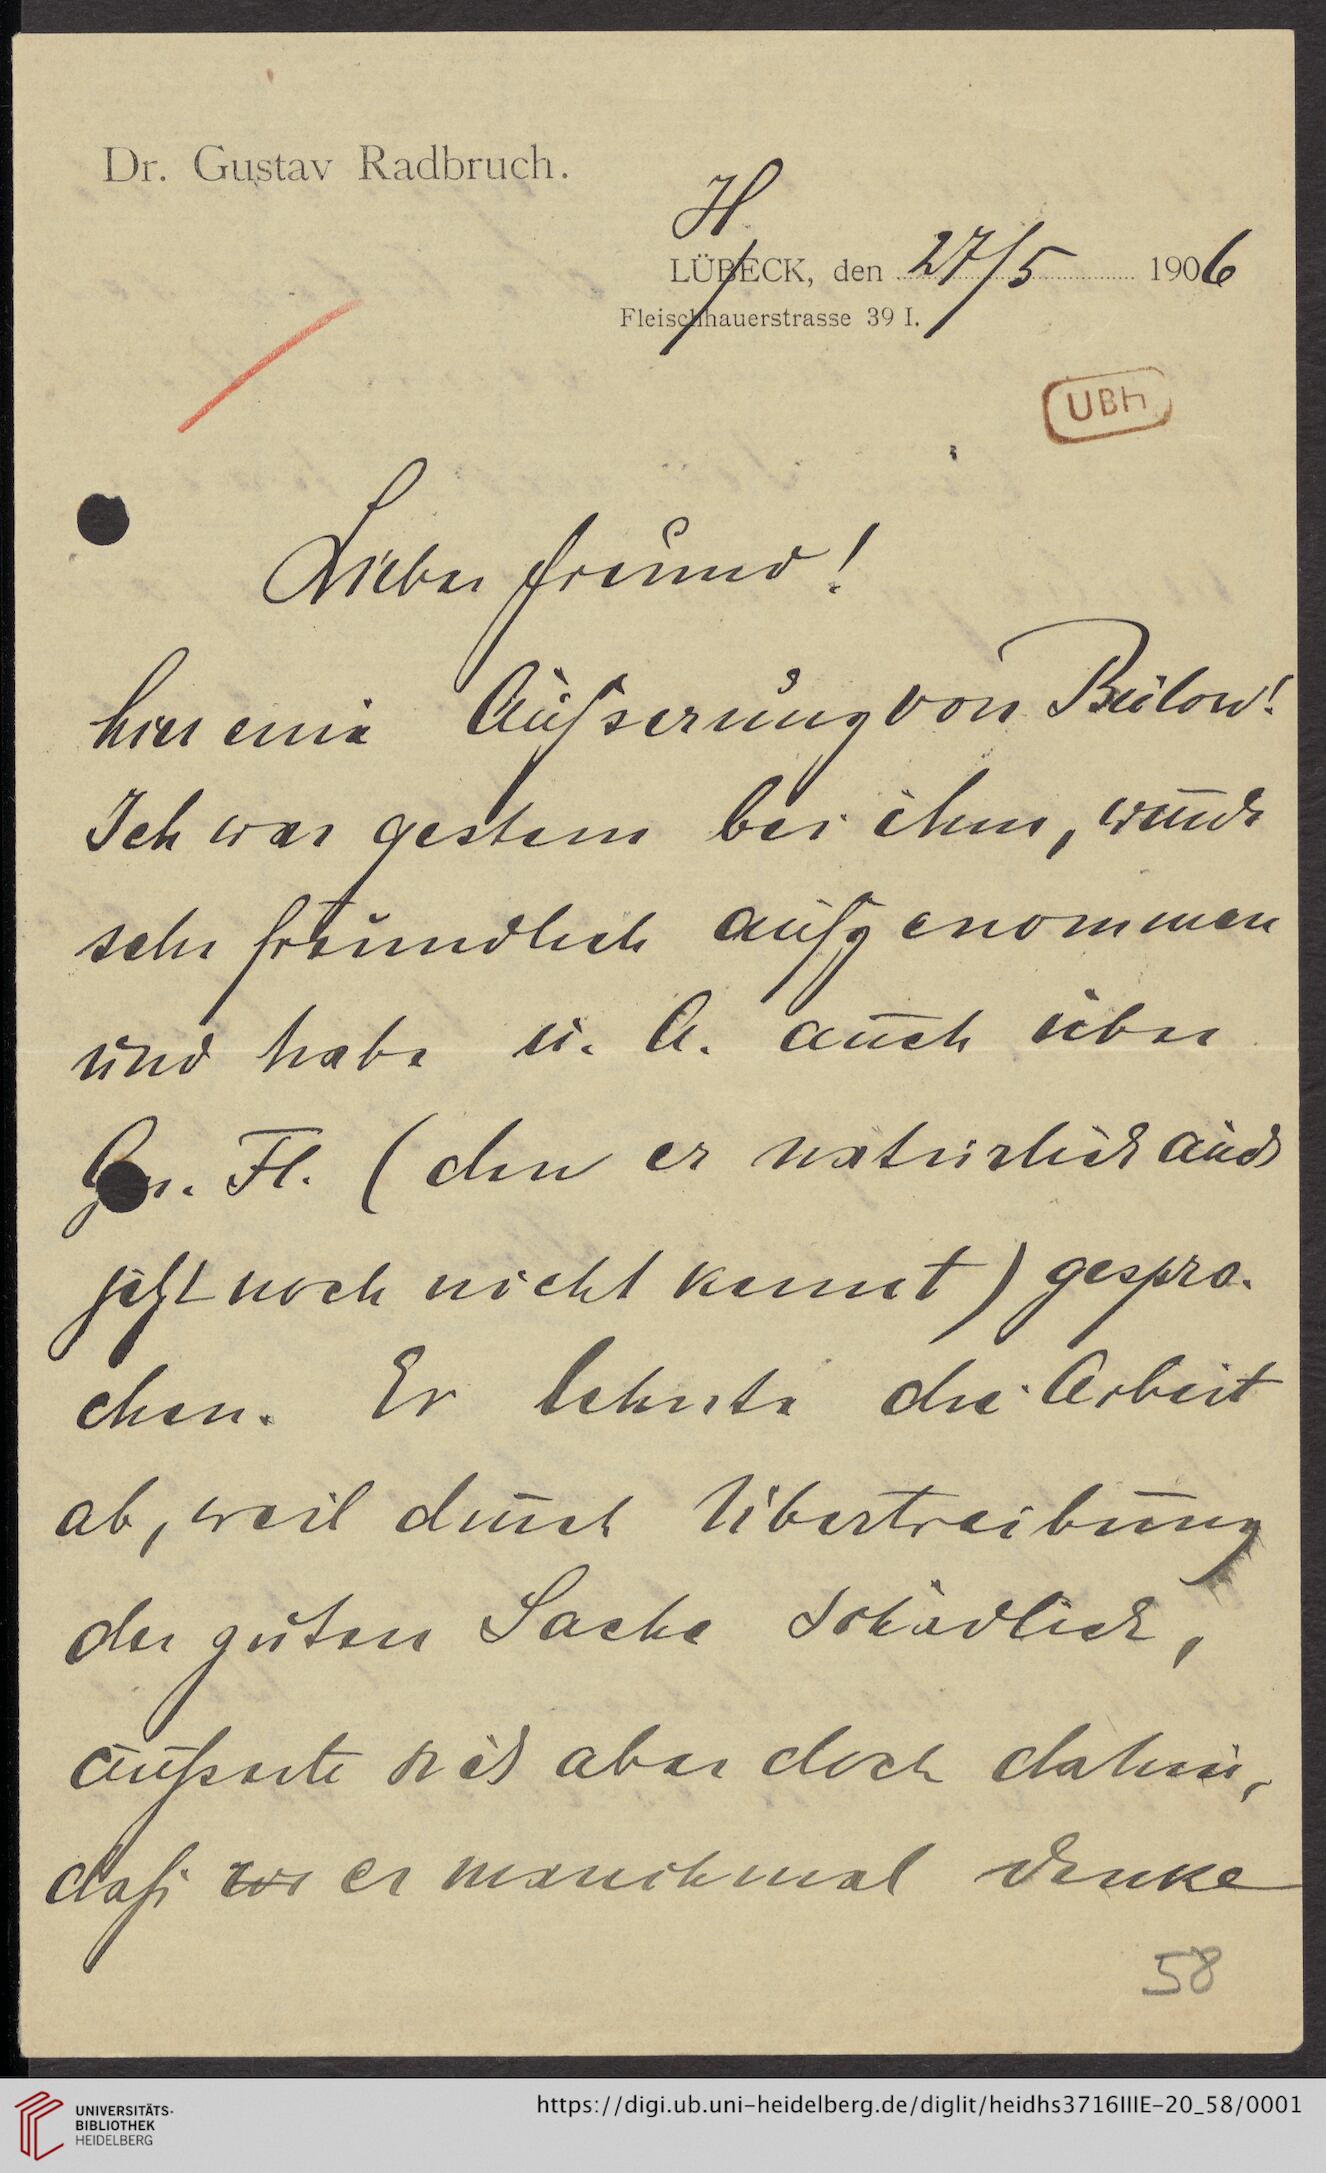 Dr. Gustav Radbruch.
H
LÜBECK, den 27/5 1906
Fleischhauerstrasse 39 I.
UBh
Lieber Freund!
hier eine Äußserung von Bülow!
Ich war gestern bei ihm, wurde
sehr freundlich aufgenommen
und habe u. A. auch über
Gn. Fl. (den er natürlich auch
jetzt noch nicht kennt) gespro-
chen. Er lehnte die Arbeit
ab, weil durch Übertreibung
der guten Sache schädlich,
äußerte sich aber doch dahin,
daß er manchmal denke
58
UNIVERSITÄTS-
BIBLIOTHEK
HEIDELBERG
https://digi.ub.uni-heidelberg.de/diglit/heidhs3716IIIE-20_58/0001